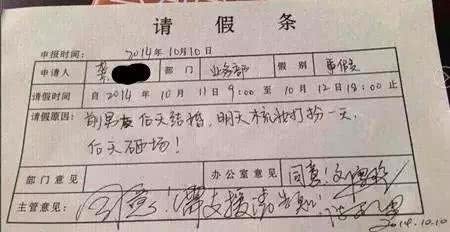 请假条
申报时间： 2014年10月10日
申请人 蔡 部门 业务部 假别 事假
请假时间 自2014年10月11日9:00至10月12日18:00止
请假原因： 前男友后天结婚，明天梳妆打扮一天，
后天砸场！
部门意见 办公室意见 同意！
主管意见 同意！需支援请告知！
2014.10.10